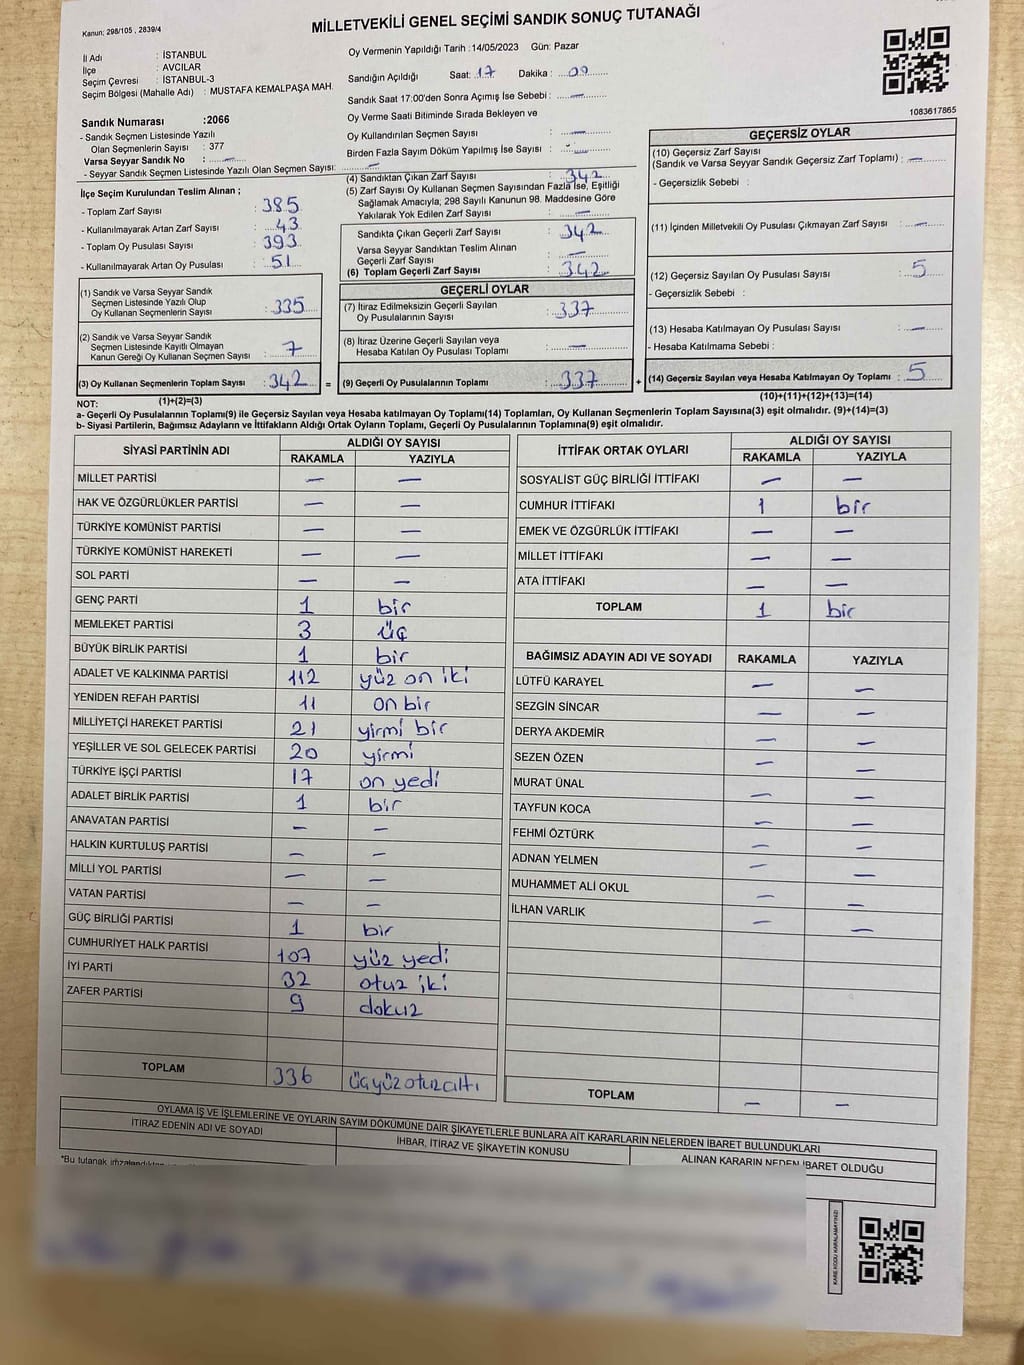 Kanun: 298/105 , 2839/4
MİLLETVEKİLİ GENEL SEÇİMİ SANDIK SONUÇ TUTANAĞI
İl Adı : İSTANBUL
İlçe : AVCILAR
Seçim Çevresi : İSTANBUL-3
Seçim Bölgesi (Mahalle Adı) : MUSTAFA KEMALPAŞA MAH.
Oy Vermenin Yapıldığı Tarih :14/05/2023 Gün: Pazar
Sandığın Açıldığı Saat: 17 Dakika : 00
Sandık Saat 17:00'den Sonra Açımış İse Sebebi : —
Oy Verme Saati Bitiminde Sırada Bekleyen ve
Oy Kullandırılan Seçmen Sayısı : —
Birden Fazla Sayım Döküm Yapılmış İse Sayısı : —
1083617865
Sandık Numarası :2066
- Sandık Seçmen Listesinde Yazılı
Olan Seçmenlerin Sayısı : 377
Varsa Seyyar Sandık No : —
- Seyyar Sandık Seçmen Listesinde Yazılı Olan Seçmen Sayısı: —
İlçe Seçim Kurulundan Teslim Alınan ;
- Toplam Zarf Sayısı : 385
- Kullanılmayarak Artan Zarf Sayısı : 43
- Toplam Oy Pusulası Sayısı : 393
- Kullanılmayarak Artan Oy Pusulası : 51
(1) Sandık ve Varsa Seyyar Sandık
Seçmen Listesinde Yazılı Olup
Oy Kullanan Seçmenlerin Sayısı : 335
(2) Sandık ve Varsa Seyyar Sandık
Seçmen Listesinde Kayıtlı Olmayan
Kanun Gereği Oy Kullanan Seçmen Sayısı : 7
(3) Oy Kullanan Seçmenlerin Toplam Sayısı : 342 =
(1)+(2)=(3)
(4) Sandıktan Çıkan Zarf Sayısı : 342
(5) Zarf Sayısı Oy Kullanan Seçmen Sayısından Fazla İse, Eşitliği
Sağlamak Amacıyla, 298 Sayılı Kanunun 98. Maddesine Göre
Yakılarak Yok Edilen Zarf Sayısı : —
Sandıkta Çıkan Geçerli Zarf Sayısı : 342
Varsa Seyyar Sandıktan Teslim Alınan
Geçerli Zarf Sayısı : —
(6) Toplam Geçerli Zarf Sayısı : 342
GEÇERLİ OYLAR
(7) İtiraz Edilmeksizin Geçerli Sayılan
Oy Pusulalarının Sayısı : 337
(8) İtiraz Üzerine Geçerli Sayılan veya
Hesaba Katılan Oy Pusulası Toplamı : —
(9) Geçerli Oy Pusulalarının Toplamı : 337 +
GEÇERSİZ OYLAR
(10) Geçersiz Zarf Sayısı
(Sandık ve Varsa Seyyar Sandık Geçersiz Zarf Toplamı) : —
- Geçersizlik Sebebi :
(11) İçinden Milletvekili Oy Pusulası Çıkmayan Zarf Sayısı : —
(12) Geçersiz Sayılan Oy Pusulası Sayısı : 5
- Geçersizlik Sebebi :
(13) Hesaba Katılmayan Oy Pusulası Sayısı : —
- Hesaba Katılmama Sebebi :
(14) Geçersiz Sayılan veya Hesaba Katılmayan Oy Toplamı : 5
(10)+(11)+(12)+(13)=(14)
NOT:
a- Geçerli Oy Pusulalarının Toplamı(9) ile Geçersiz Sayılan veya Hesaba katılmayan Oy Toplamı(14) Toplamları, Oy Kullanan Seçmenlerin Toplam Sayısına(3) eşit olmalıdır. (9)+(14)=(3)
b- Siyasi Partilerin, Bağımsız Adayların ve İttifakların Aldığı Ortak Oyların Toplamı, Geçerli Oy Pusulalarının Toplamına(9) eşit olmalıdır.
SİYASİ PARTİNİN ADI ALDIĞI OY SAYISI
RAKAMLA YAZIYLA
MİLLET PARTİSİ — —
HAK VE ÖZGÜRLÜKLER PARTİSİ — —
TÜRKİYE KOMÜNİST PARTİSİ — —
TÜRKİYE KOMÜNİST HAREKETİ — —
SOL PARTİ — —
GENÇ PARTİ 1 bir
MEMLEKET PARTİSİ 3 üç
BÜYÜK BİRLİK PARTİSİ 1 bir
ADALET VE KALKINMA PARTİSİ 112 yüz on iki
YENİDEN REFAH PARTİSİ 11 on bir
MİLLİYETÇİ HAREKET PARTİSİ 21 yirmi bir
YEŞİLLER VE SOL GELECEK PARTİSİ 20 yirmi
TÜRKİYE İŞÇİ PARTİSİ 17 on yedi
ADALET BİRLİK PARTİSİ 1 bir
ANAVATAN PARTİSİ — —
HALKIN KURTULUŞ PARTİSİ — —
MİLLİ YOL PARTİSİ — —
VATAN PARTİSİ — —
GÜÇ BİRLİĞİ PARTİSİ 1 bir
CUMHURİYET HALK PARTİSİ 107 yüz yedi
İYİ PARTİ 32 otuz iki
ZAFER PARTİSİ 9 dokuz
TOPLAM 336 üçyüzotuzaltı
İTTİFAK ORTAK OYLARI ALDIĞI OY SAYISI
RAKAMLA YAZIYLA
SOSYALİST GÜÇ BİRLİĞİ İTTİFAKI — —
CUMHUR İTTİFAKI 1 bir
EMEK VE ÖZGÜRLÜK İTTİFAKI — —
MİLLET İTTİFAKI — —
ATA İTTİFAKI — —
TOPLAM 1 bir
BAĞIMSIZ ADAYIN ADI VE SOYADI RAKAMLA YAZIYLA
LÜTFÜ KARAYEL — —
SEZGİN SİNCAR — —
DERYA AKDEMİR — —
SEZEN ÖZEN — —
MURAT ÜNAL — —
TAYFUN KOCA — —
FEHMİ ÖZTÜRK — —
ADNAN YELMEN — —
MUHAMMET ALİ OKUL — —
İLHAN VARLIK — —
TOPLAM — —
OYLAMA İŞ VE İŞLEMLERİNE VE OYLARIN SAYIM DÖKÜMÜNE DAİR ŞİKAYETLERLE BUNLARA AİT KARARLARIN NELERDEN İBARET BULUNDUKLARI
İTİRAZ EDENİN ADI VE SOYADI İHBAR, İTİRAZ VE ŞİKAYETİN KONUSU ALINAN KARARIN NEDEN İBARET OLDUĞU
*Bu tutanak
KARE KODU KARALAMAYINIZ!